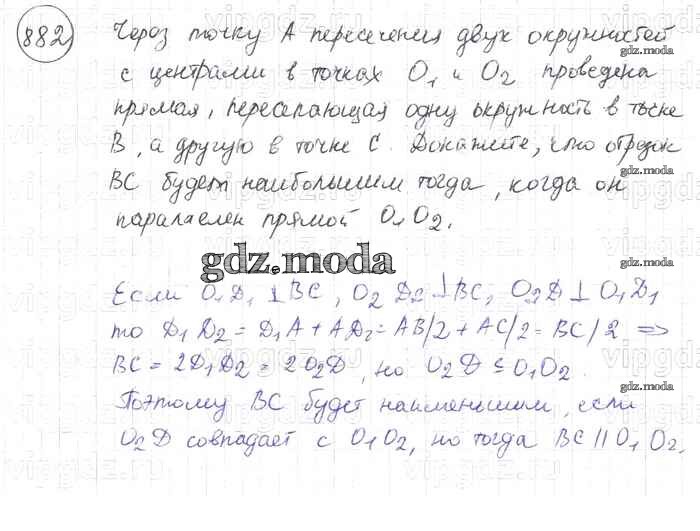 882
Через точку А пересечения двух окружностей
с центрами в точках O₁ и O₂ проведена
прямая, пересекающая одну окружность в точке
В, а другую в точке С. Докажите, что отрезок
ВС будет наибольшим тогда, когда он
параллелен прямой O₁O₂.
gdz.moda
Если O₁D₁ ⊥ BC, O₂D₂ ⊥ BC, O₂D ⊥ O₁D₁
то D₁D₂ = D₁A + AD₂ = AB/2 + AC/2 = BC/2 ⇒
BC = 2D₁D₂ = 2O₂D, но O₂D ≤ O₁O₂.
Поэтому BC будет наименьшим, если
O₂D совпадает с O₁O₂, но тогда BC || O₁O₂.
gdz.moda
gdz.moda
gdz.moda
gdz.moda
gdz.moda
gdz.moda
gdz.moda